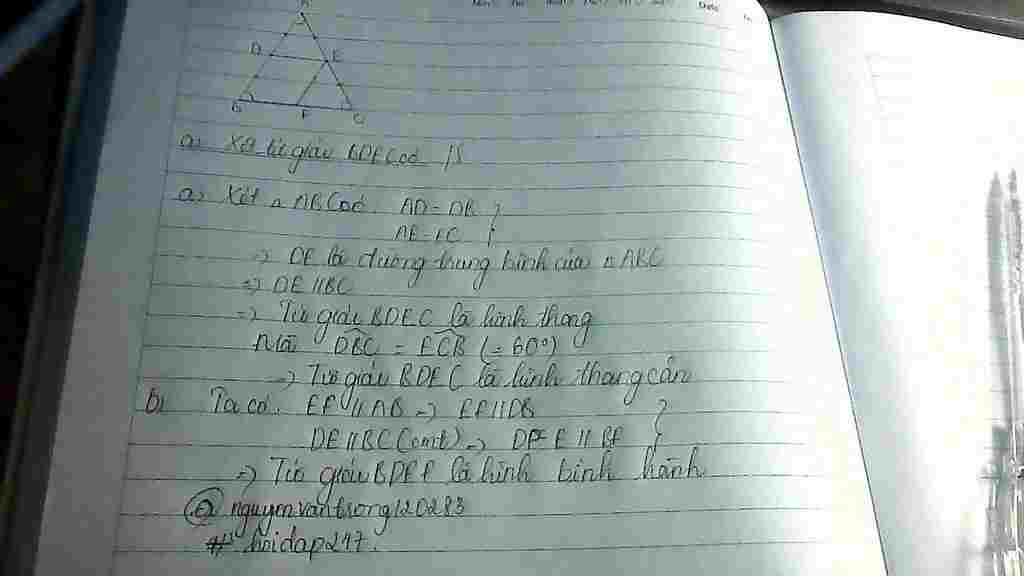 A
D E
B F C
a) Xét tứ giác BDEC có
a) Xét △ ABC có: AD = DB }
AE = EC }
=> DE là đường trung bình của △ ABC
=> DE // BC
=> Tứ giác BDEC là hình thang
Mà DBC = ECB (= 60°)
=> Tứ giác BDEC là hình thang cân
b) Ta có: EF // AB => EF // DB }
DE // BC (cmt) => DE // BF }
=> Tứ giác BDEF là hình bình hành
@ nguyenvantrong120283
# hoidap247.